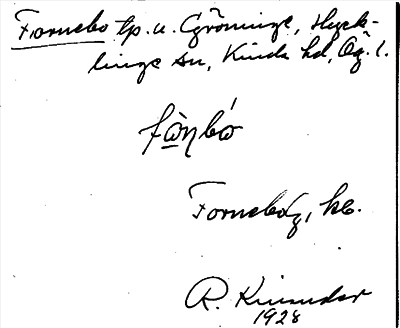 Fornebo tp. u. Gröninge, Hyck-
linge sn, Kinda hd, Ög. l.
fǫ̀ṇbó
Fornebo, kb.
R. Kinander
1928